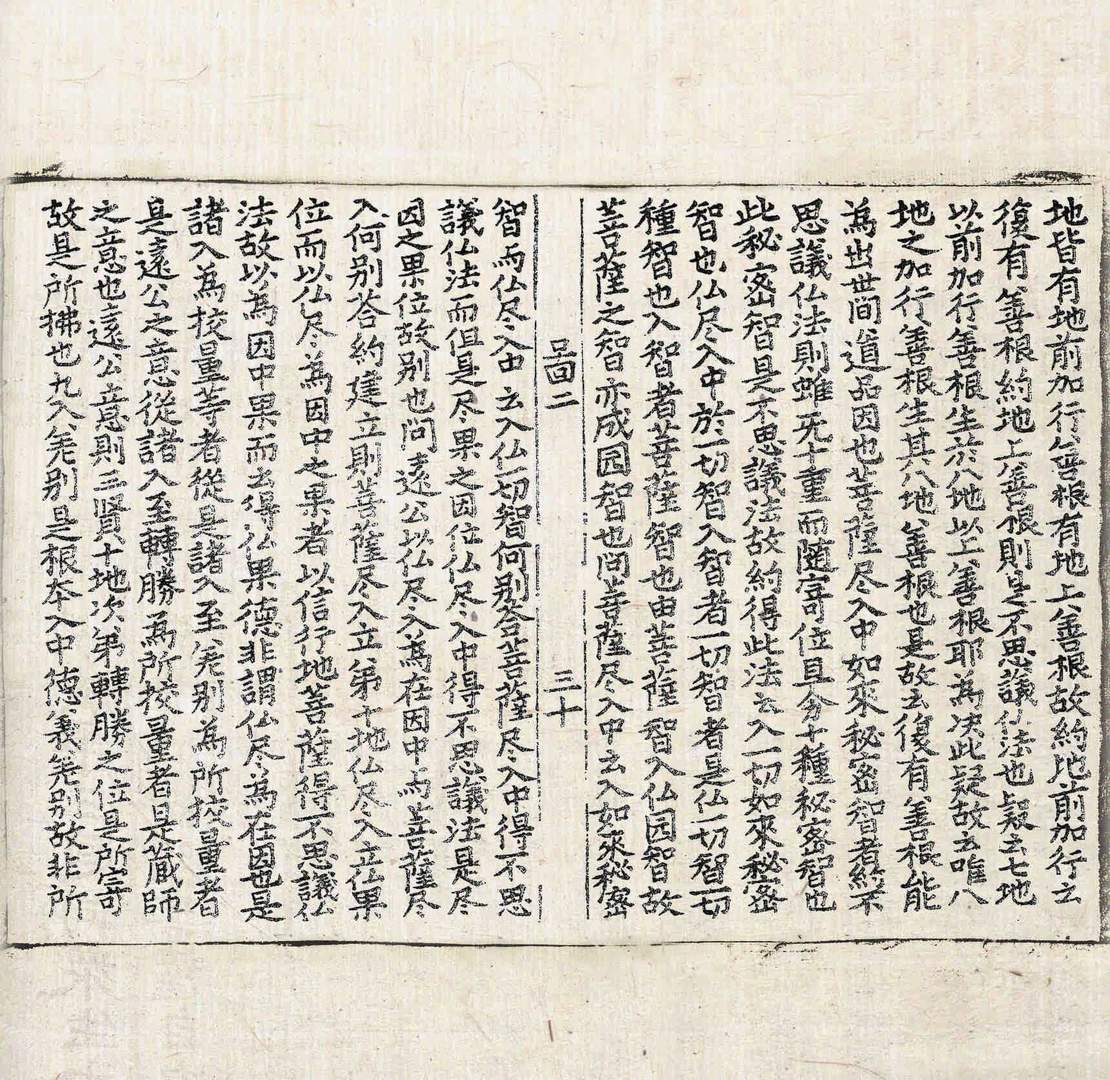 地皆有地前加行善根有地上善根故約地前加行云
復有善根約地上善根則是不思議仏法也疑云七地
以前加行善根生於八地以上善根耶為决此疑故云唯八
地之加行善根生其八地善根也是故云復有善根能
為出世間道品因也菩薩尽入中如來秘密智者約不
思議仏法則雖旡十重而随寄位且分十種秘密智也
此秘密智是不思議法故約得此法云入一切如來秘密
智也仏尽入中於一切智入智者一切智者是仏一切智一切
種智也入智者菩薩智也由菩薩智入仏因智故
菩薩之智亦成因智也問菩薩尽入中云入如來秘密
圖二 三十
智而仏尽入中云入仏一切智何别荅菩薩尽入中得不思
議仏法而但是尽果之因位仏尽入中得不思議法是尽
因之果位故别也問遠公以仏尽入為在因中与菩薩尽
入何别荅約建立則菩薩尽入立第十地仏尽入立仏果
位而以仏尽為因中之果者以信行地菩薩得不思議仏
法故以為因中果而云得仏果德非謂仏尽為在因也是
諸入為挍量等者從是諸入至差别為所挍量者
是遠公之意從諸入至轉勝為所挍量者是蔵師
之意也遠公意則三賢十地次第轉勝之位是所寄
故是所拂也九入差别是根夲入中德義差别故非所